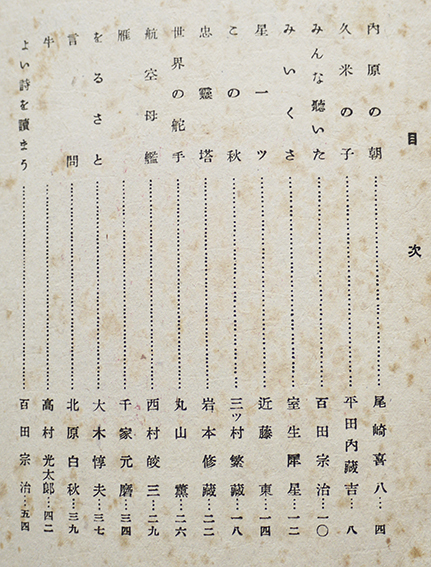 目次
內原の朝……尾崎喜八…四
久米の子……平田內藏吉…八
みんな聽いた……百田宗治…一〇
みいくさ……室生犀星…一二
星一ツ……近藤東…一四
この秋……三ツ村繁藏…一八
忠靈塔……岩本修藏…二二
世界の舵手……丸山薰…二六
航空母艦……西村皎三…二九
雁……千家元麿…三四
をるさと……大木惇夫…三七
言問……北原白秋…三九
牛……高村光太郎…四二
よい詩を讀まう……百田宗治…五四